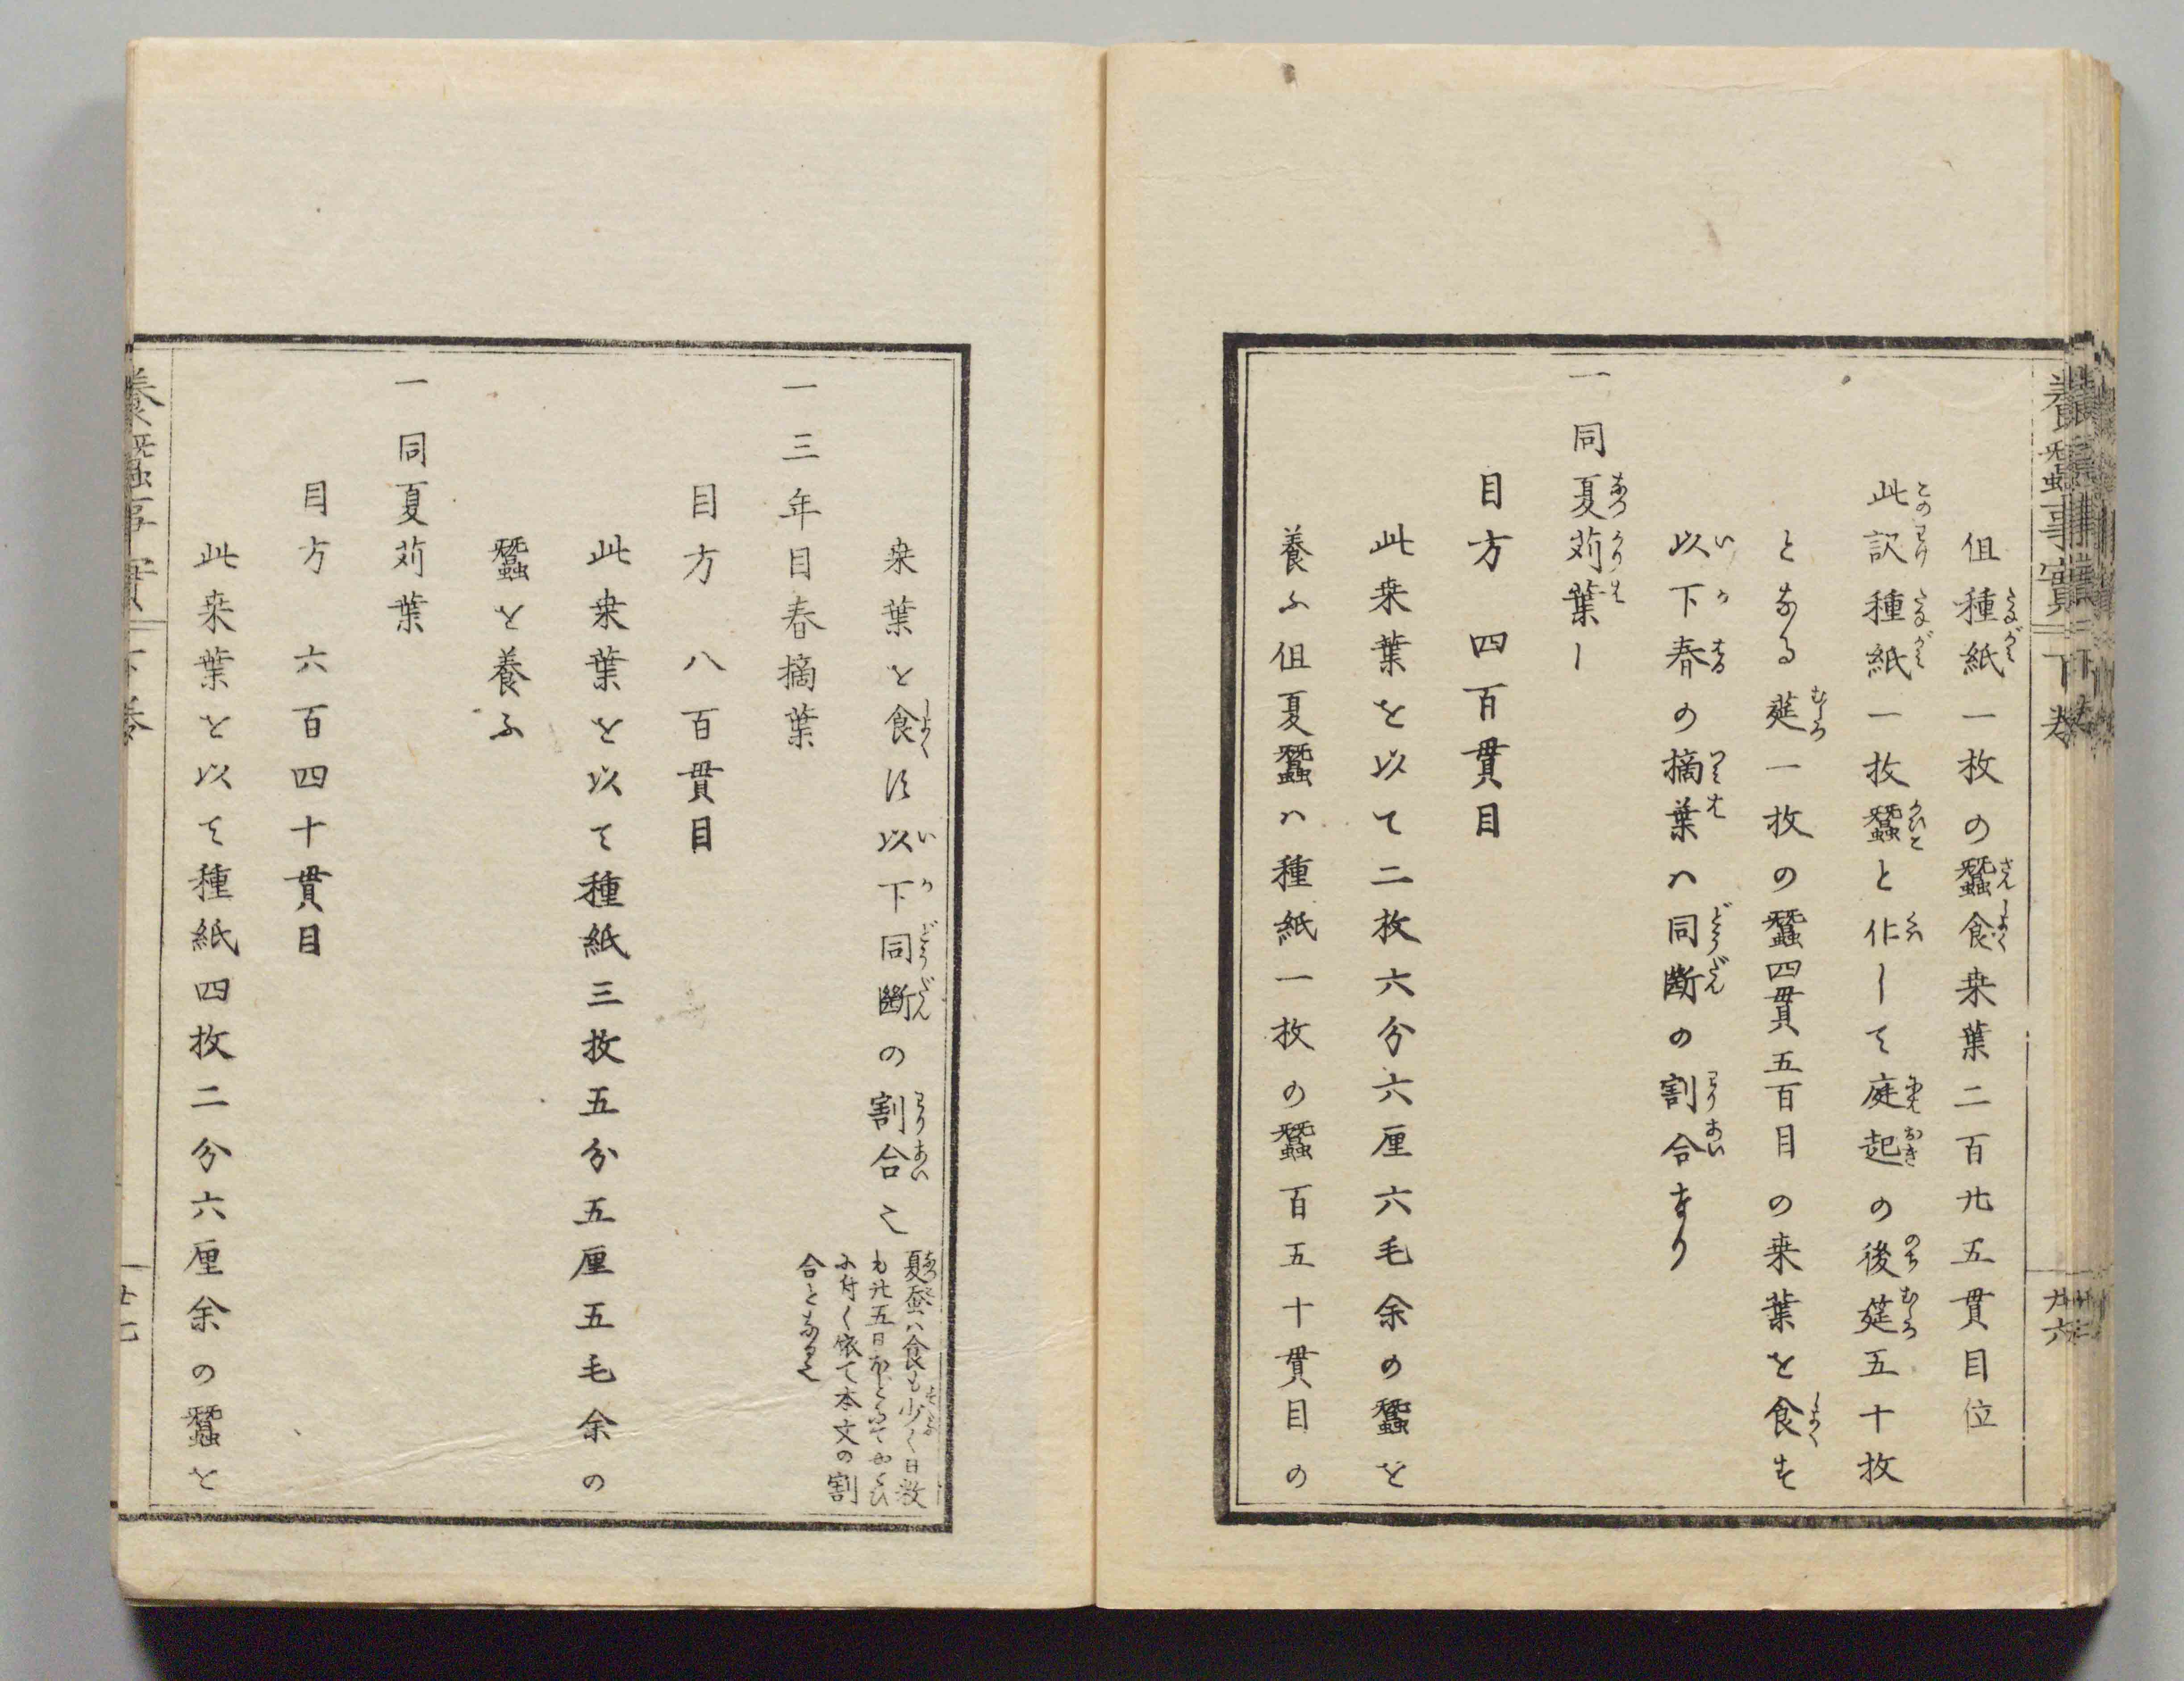 養蚕事實 下巻 廿六
但種紙一枚の蚕食桒葉二百廿五貫目位
此訳種紙一枚蚕と化して庭起の後筵五十枚
となる筵一枚の蚕四貫五百目の桒葉を食す
以下春の摘葉ハ同断の割合なり
一 同夏苅葉し
目方 四百貫目
此桒葉を以て二枚六分六厘六毛余の蚕を
養ふ但夏蚕ハ種紙一枚の蚕百五十貫目の
桒葉を食す以下同断の割合也
夏蚕ハ食も少く日数
も廿五日
に付く依て本文の割
合となる也
一 三年目春摘葉
目方 八百貫目
此桒葉を以て種紙三枚五分五厘五毛余の
蚕を養ふ
一 同夏苅葉
目方 六百四十貫目
此桒葉を以て種紙四枚二分六厘余の蚕を
養蚕事實 下巻 廿七